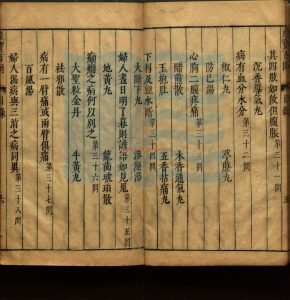 其四肢如故但腹脹 第三十一問
沉香導氣丸
病有血分水分 第三十二問
椒仁丸 葶藶丸
防己湯
心胸腹疼痛 第三十三問
醋煎散 木香通氣丸
玉抱肚 五香拈痛丸
下利及洩水斷 第三十四問
大斷下丸
婦人晝日明了暮則譫語如見鬼 第三十五問
地黃丸 龍齒琥珀散
癲癇之病何以別之 第三十六問
大聖
金丹 牛黃丸
祛邪散
病有一臂痛或兩臂俱痛 第三十七問
百風湯
婦人渴病與三消之病同異 第三十八問
目錄
六